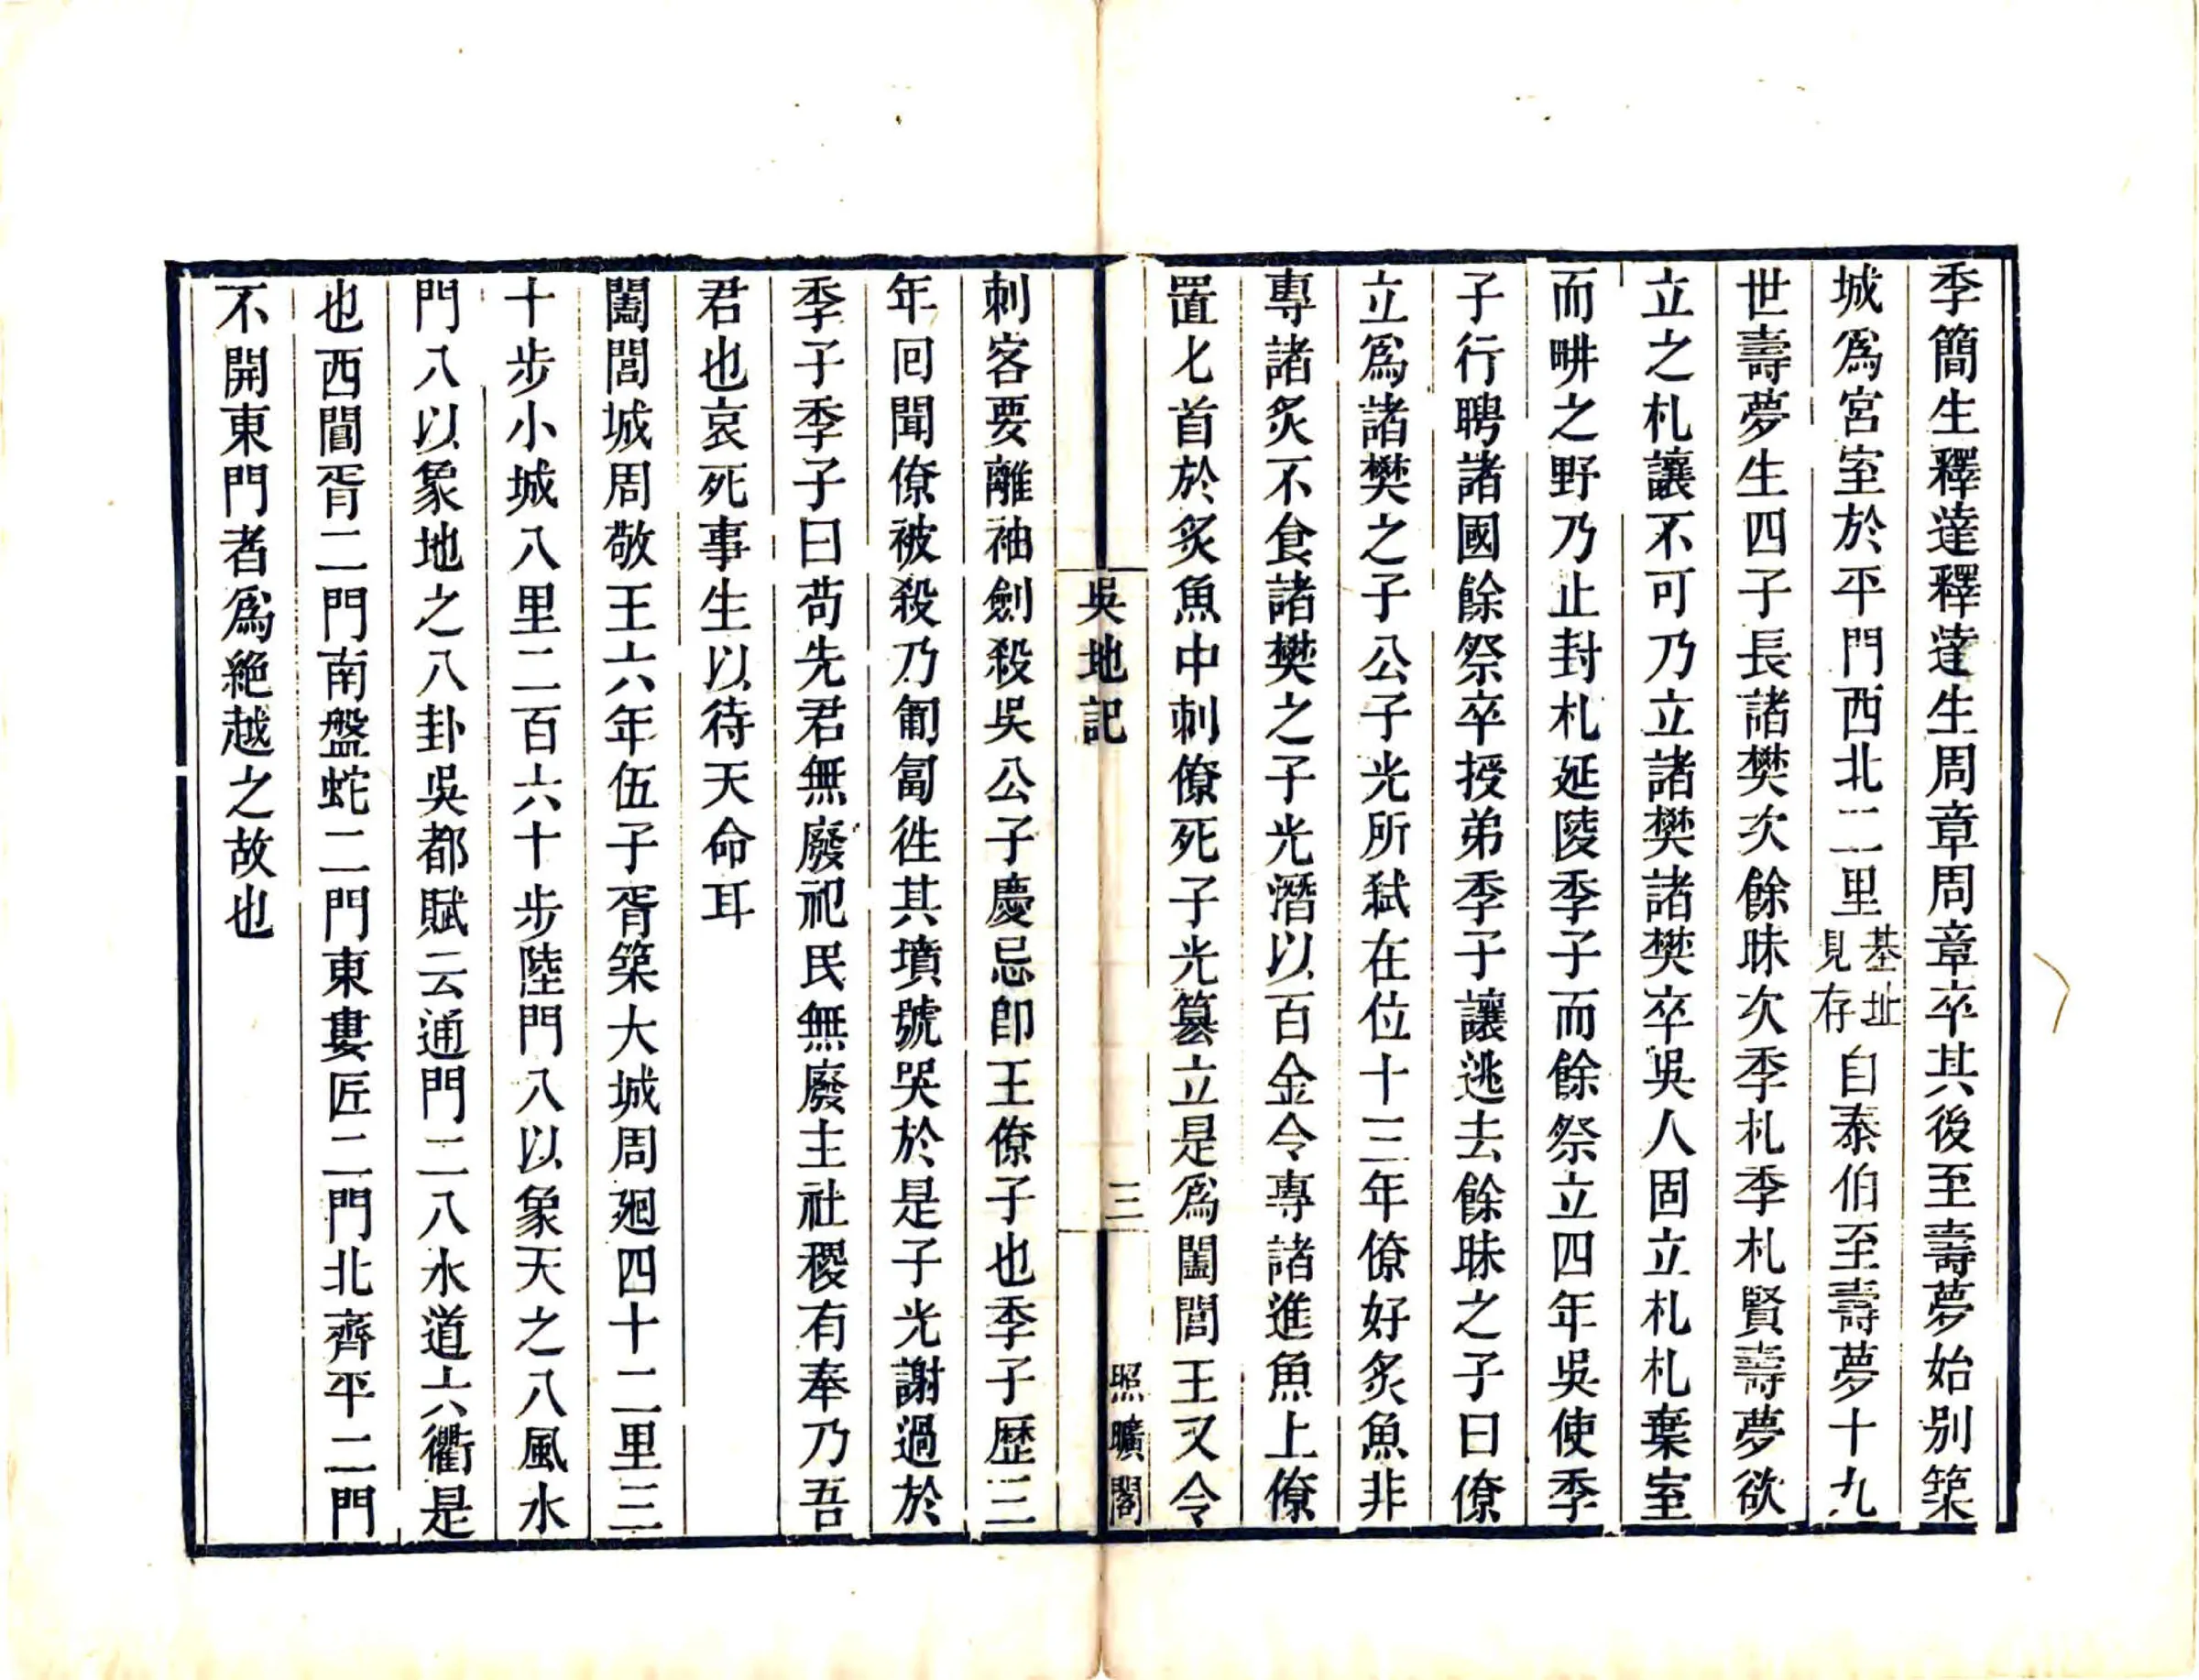 季簡生釋達釋達生周章周章卒其後至壽夢始别築
城爲宮室於平門西北二里基址見存自泰伯至壽夢十九
世壽夢生四子長諸樊次餘昧次季札季札賢壽夢欲
立之札讓不可乃立諸樊諸樊卒吳人固立札札棄室
而畊之野乃止封札延陵季子而餘祭立四年吳使季
子行聘諸國餘祭卒授弟季子讓逃去餘昧之子曰僚
立爲諸樊之子公子光所弑在位十三年僚好炙魚非
專諸炙不食諸樊之子光潛以百金令專諸進魚上僚
置匕首於炙魚中刺僚死子光簒立是爲闔閭王又令
吳地記
三
照曠閣
刺客要離袖劍殺吳公子慶忌卽王僚子也季子歷三
年回聞僚被殺乃匍匐徃其墳號哭於是子光謝過於
季子季子曰苟先君無廢祀民無廢主社稷有奉乃吾
君也哀死事生以待天命耳
闔閭城周敬王六年伍子胥築大城周廻四十二里三
十步小城八里二百六十步陸門八以象天之八風水
門八以象地之八卦吳都賦云通門二八水道六衢是
也西閶胥二門南盤蛇二門東婁匠二門北齊平二門
不開東門者爲絶越之故也